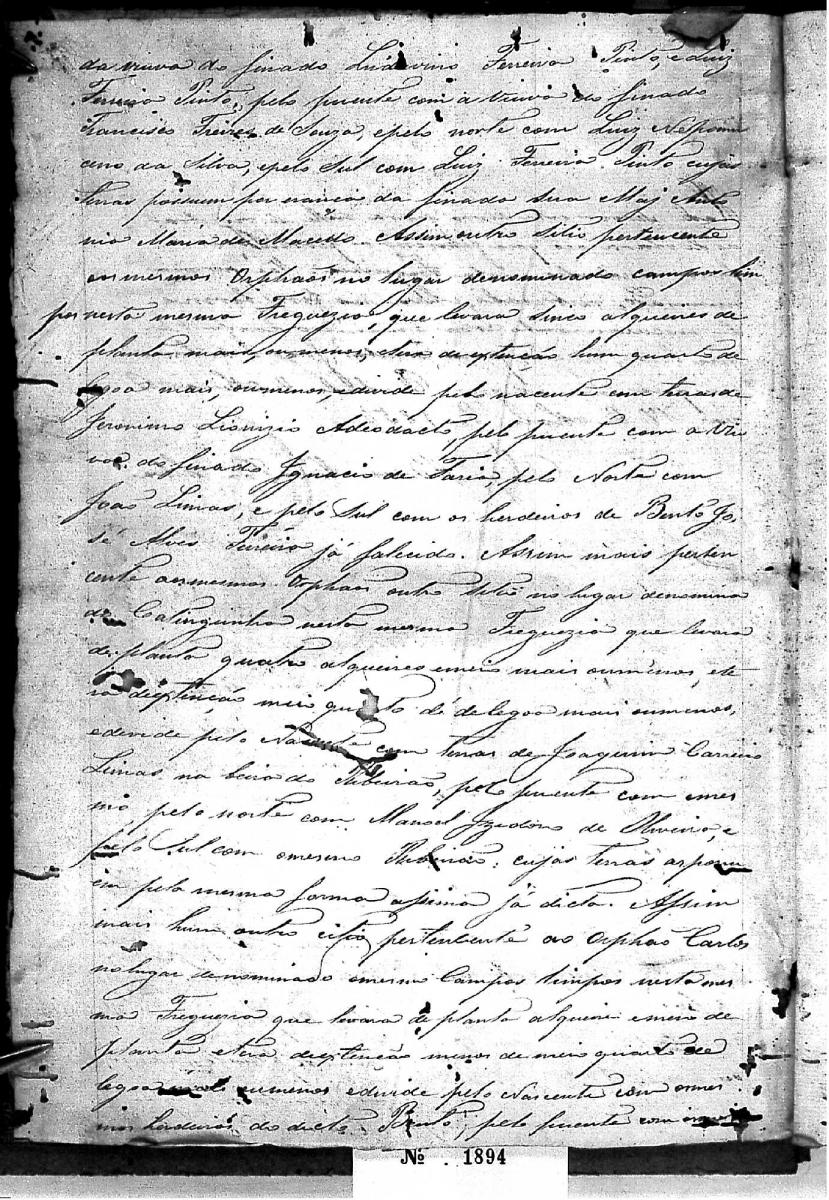 da viuva do finado Ludivino Ferreira Pinto, e Luiz
Ferreira Pinto, pelo puente com a viuva do finado
Francisco Freires de Souza, epelo norte com Luiz Nepomu
ceno da Silva, epelo Sul com Luiz Ferreira Pinto cujas
terras possuem por erancia da finada sua Maj Anto
nia Maria de Macedo. Assim outro Sitio pertencente
aos mesmos Orphaos no lugar denominado campos lim
pos nesta mesma Freguezia, que levara sinco alqueires de
planta mais, ou menos, etera de extinção hum quarto de
legoa mais, oumenos, edivide pelo nacente com terras de
Jeronimo Lionizio Adeodacto, pelo puente com a viu
va do finado Ignacio de Faria, pelo Norte com
João Limas, e pelo Sul com os herdeiros de Bento Jo,
sé Alves Ferreira já falicido. Assim mais perten
cente aos mesmos Orphaos outro Sitio no lugar denomina
do Catinguinha nesta mesma Freguezia que levara
de planta quatro alqueires emeio mais oumenos, ete
ra deextinção meio quarto dé de legoa mais oumenos,
edevide pelo Nascente com terras de Joaquim Carreiro
Limas na beira do Ribeirão, pelo puente com omes
mo, pelo norte com Manoel Izedoro de Oliveira, e
pelo Sul com omesmo Ribeirão; cujas terras aspossu
em pela mesma forma assima já dicta. Assim
mais hum outro citio pertencente ao Orphao Carlos
no lugar denominado omesmo Campos limpos nesta mes
ma Freguezia que levara de planta alqueire emeio de
planta etera deextinção menos de meio quarto de
legoa mais oumenos edivide pelo Nascente com osmes
mos herdeiros do dicto Bento, pelo puente com
Nº 1894